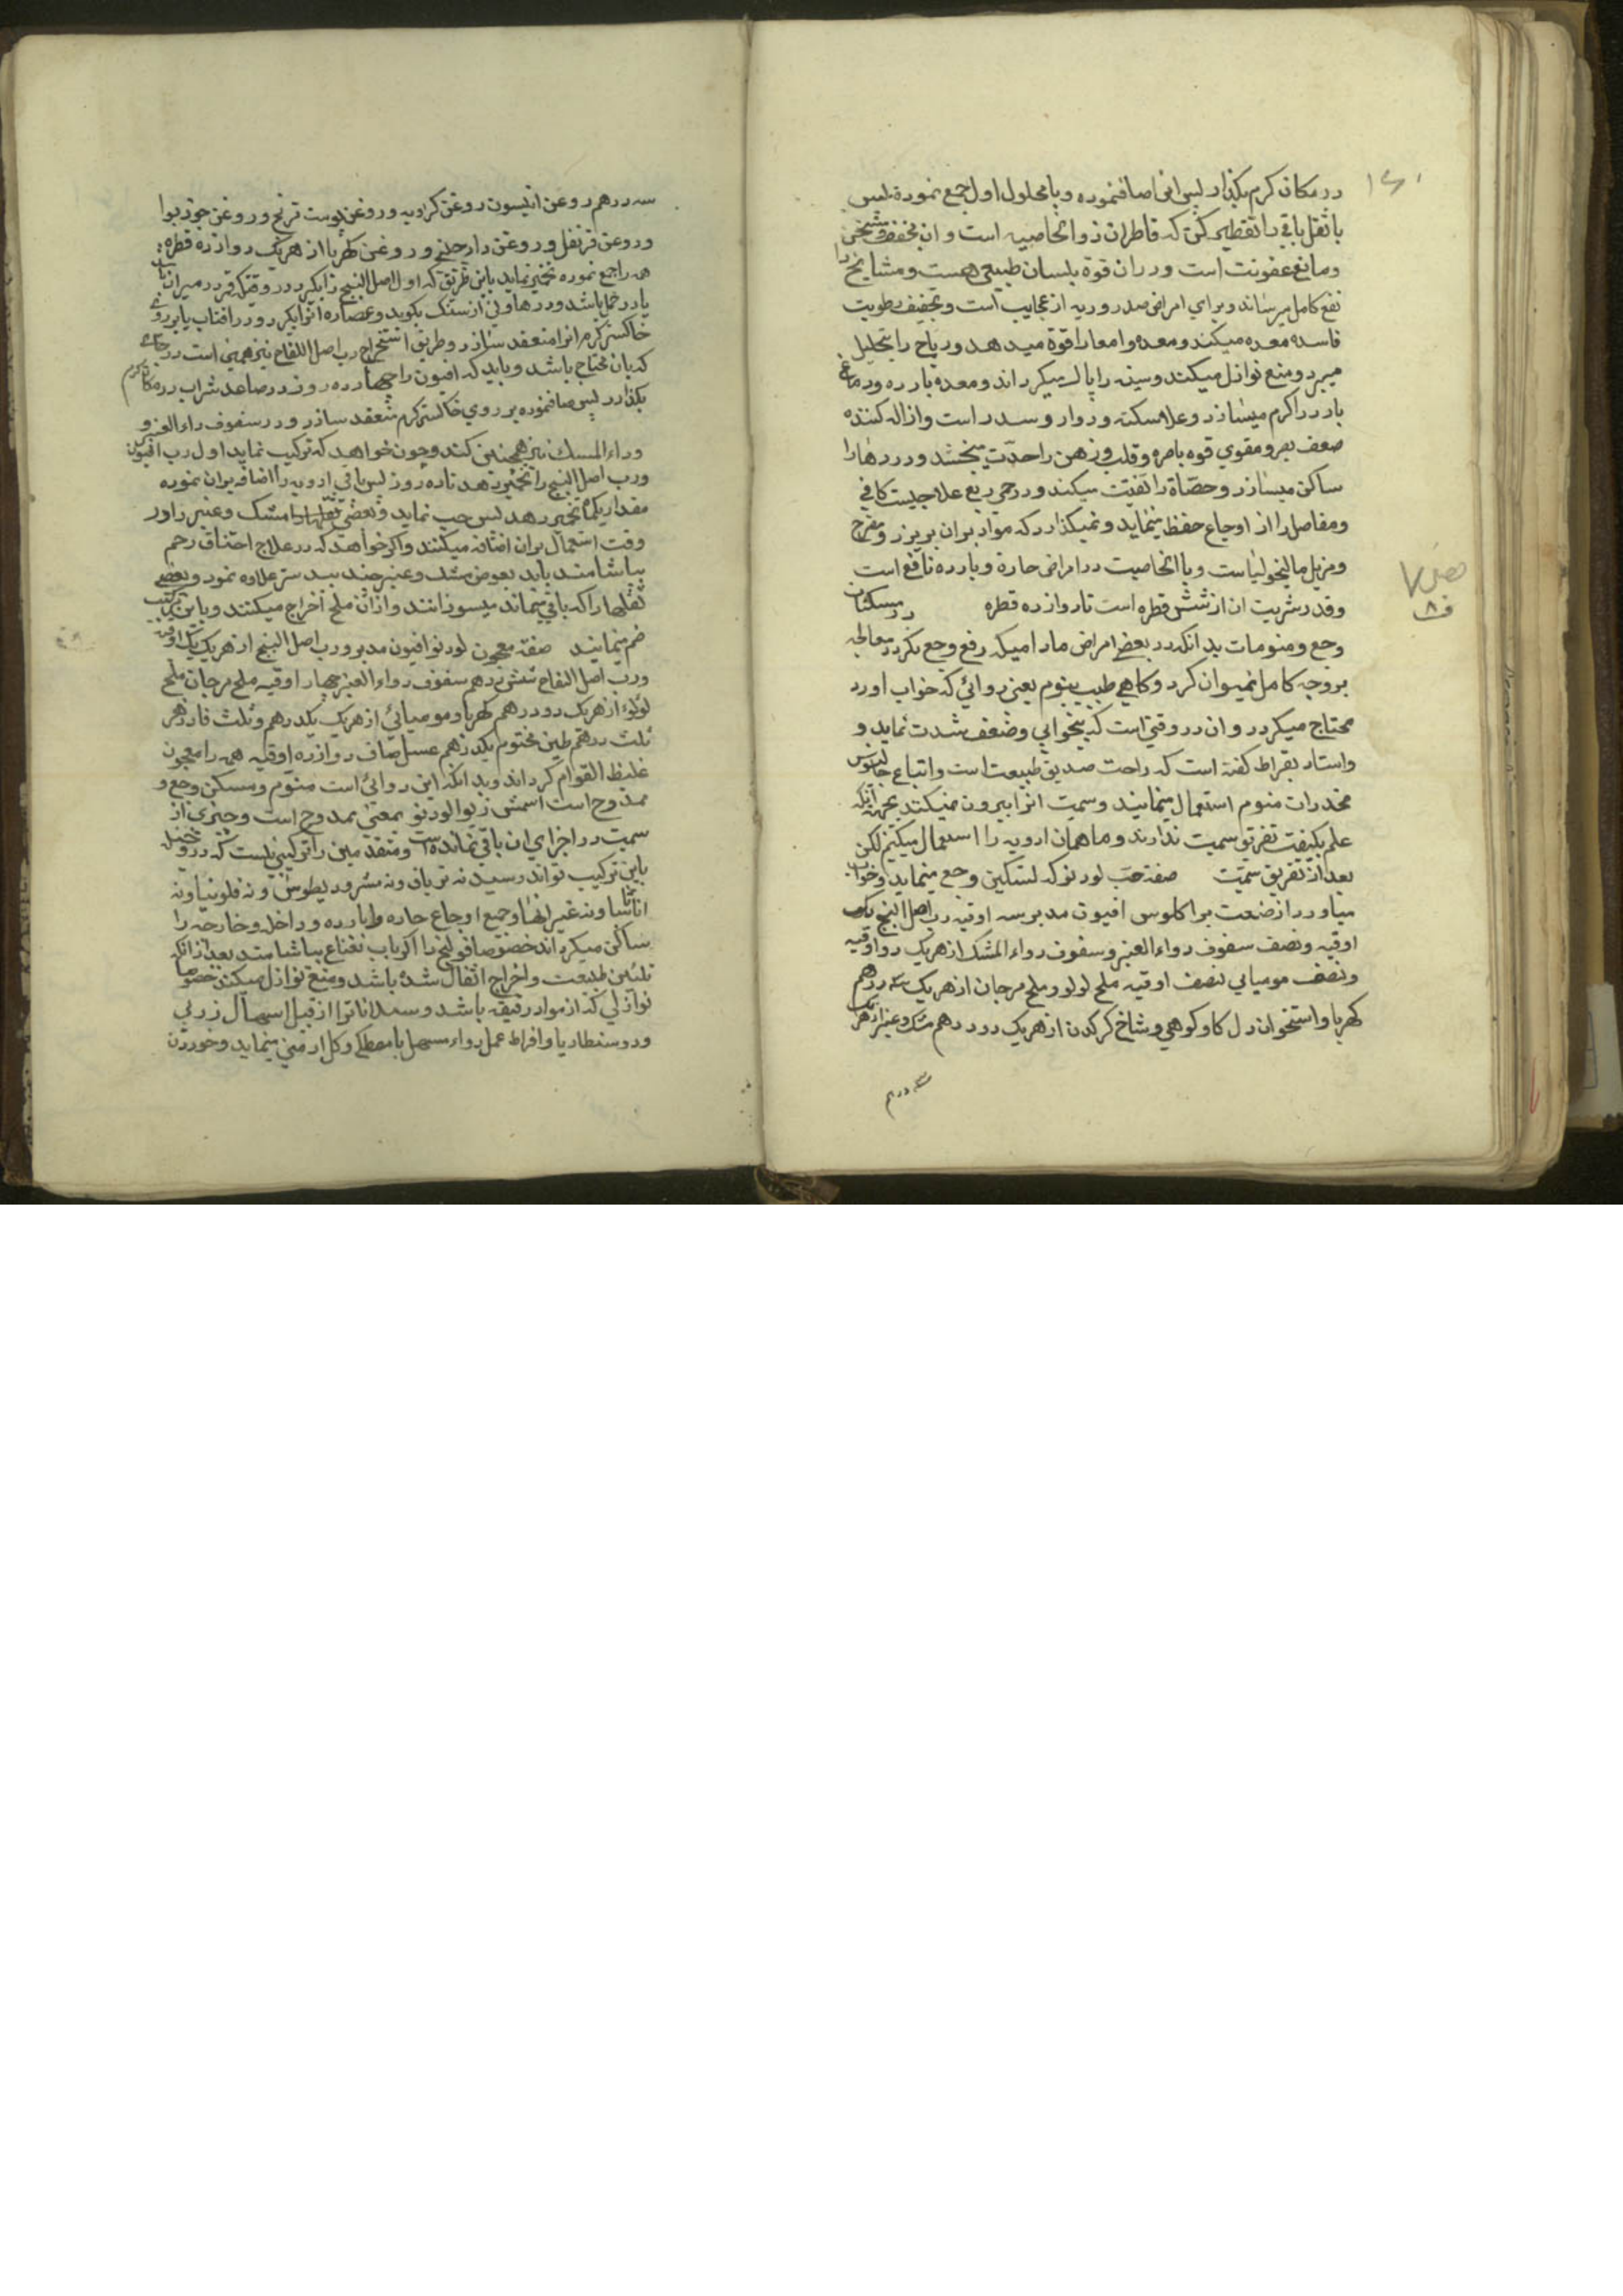 در مکان کرم بکذارد پس انرا صافنموده و با محلول اول جمع نموده پس
با ثقل باقی را تقطیر کن که قاطران ذو الخاصیه است و ان مخفف و مسخن
و مانع عفونت است و در ان قوة بلسان طبیعی هست و مشایخ را
نفع کامل میرساند و برای امراض صدر و ریه از عجایب است و تجفیف رطوبت
فاسده معده میکند و معده و امعا را قوة میدهد و ریاح را بتحلیل
میبرد و منع نوازل میکند و سینه را پاک میکرداند و معده بارده و دماغ
بارد را کرم میسازد و علاج سکته و دوار و سدر است و ازاله کننده
ضعف بصر و مقوی قوه باصره و قلب و ذهن را حدّت میبخشد و دردها را
ساکن میسازد و حصاة را تفتت میکند و در حمی ربع علاجیست کافی
و مفاصل را از اوجاع حفظ مینماید و نمیکذارد که مواد بران بریزد و مفرح
و مزیل مالیخولیاست و با الخاصیت در امراض حارة و بارده نافع است
و قدر شربت ان از شش قطره است تا دوازده قطره در مسکنات
وجع و منومات بدانکه در بعض امراض مادامیکه رفع وجع نکردد معالجه
بروجه کامل نمیتوان کرد و کاهی طبیب بمنوم یعنی دوائی که خواب اورد
محتاج میکردد و ان در وقتی است که بیخوابی و ضعف شدت نماید و
و استاد بقراط کفته است که راحت صدیق طبیعت است و اتباع جالینوس
مخدرات منوم استعمال مینمایند و سمیت انرا بیرون نمیکنند بجهة انکه
علم بکیفیت تفریق سمیت ندارند و ما همان ادویه را استعمال میکنیم لکن
بعد از تفریق سمیّت صفة حب لودنو که تسکین وجع مینماید و خواب
میاورد از صنعت براکلوس افیون مدبر سه اوقیه رب اصل البنج یک
اوقیه و نصف سفوف دواء العنبر و سفوف دواء المشک از هریک دو اوقیه
و نصف مومیایی نصف اوقیه ملح لولو و ملح مرجان از هریک سه درهم
کهربا و استخوان دل کاو کوهی و شاخ کرکدن از هریک دو درهم مشک و عنبر از هریک
سه درهم
سه درهم روغن انیسون روغن کراویه و روغن پوست ترنج و روغن جوزبوا
و روغن قرنفل و روغن دارچینی و روغن کهربا از هریک دوازده قطره
همه را جمع نموده تخمیر نماید باین طریق که اول اصل البنج را بکیرد در وقتیکه قمر در میزان
یا در باشد و در هاونی از سنک بکوبد و عصاره انرا بکیرد و در افتاب یا بر روی
خاکستر کرم انرا منعقد سازد و طریق استخراج رب اصل اللفاح نیز همین است در جائی
که بان محتاج باشد و باید که افیون را چهارده روز در صاعد شراب در مکان کرم
بکذارد پس صافنموده بر روی خاکستر کرم منعقد سازد و در سفوف دواء العنبر و
و دواء المسک نیز همچنین کند و چون خواهد که ترکیب نماید اول رب افیون
و رب اصل البنج را تخمیر دهد تا ده روز پس باقی ادویه را اضافه بران نموده
مقدار یکماه تخمیر دهد پس حب نماید و بعضی مشک و عنبر را در
وقت استعمال بران اضافه میکنند و اکر خواهد که در علاج اختناق رحم
بیاشامند باید بعوض مشک و عنبر جند بیدستر علاوه نمود و بعضی
ثفلها را که باقی میماند میسوزانند و از ان ملح اخراج میکنند و باین ترکیب
ضم مینمایند صفة معجون لودنو افیون مدبر و رب اصل البنج از هریک یک اوقیه
و رب اصل اللفاح شش درهم سفوف دواء العنبر چهار اوقیه ملح مرجان ملح
لولوء از هریک دو درهم کهربا و مومیائی از هریک یکدرهم و ثلث فادزهر
ثلث درهم طین مختوم یکدرهم عسل صاف دوازده اوقیه همه را معجون
غلیظ القوام کرداند و بدانکه این دوائی است منوم و مسکن وجع و
ممدوح است اسمش زیوا لودنو بمعنی ممدوح است و چیزی از
سمیت در اجزای ان باقی نمانده است و متقدمین را ترکیبی نیست که در
باین ترکیب تواند رسید نه تریاق و نه مثرودیطوس و نه فلونیا و نه
اثاناسیا و نه غیر انها و جمع اوجاع حاره و بارده و داخله و خارجه را
ساکن میکرداند خصوصا قولنج را اکر با اب نعناع بیاشامند بعد از انکه
تلیین طبیعت و اخراج اثفال شده باشد و منع نوازل میکند خصوصا
نوازلی که از مواد رقیقه باشد و اسهال ذربی
و دوسنطاریا و افراط عمل دواء مسهل با مصطکی و کل ارمنی مینماید و خوردن